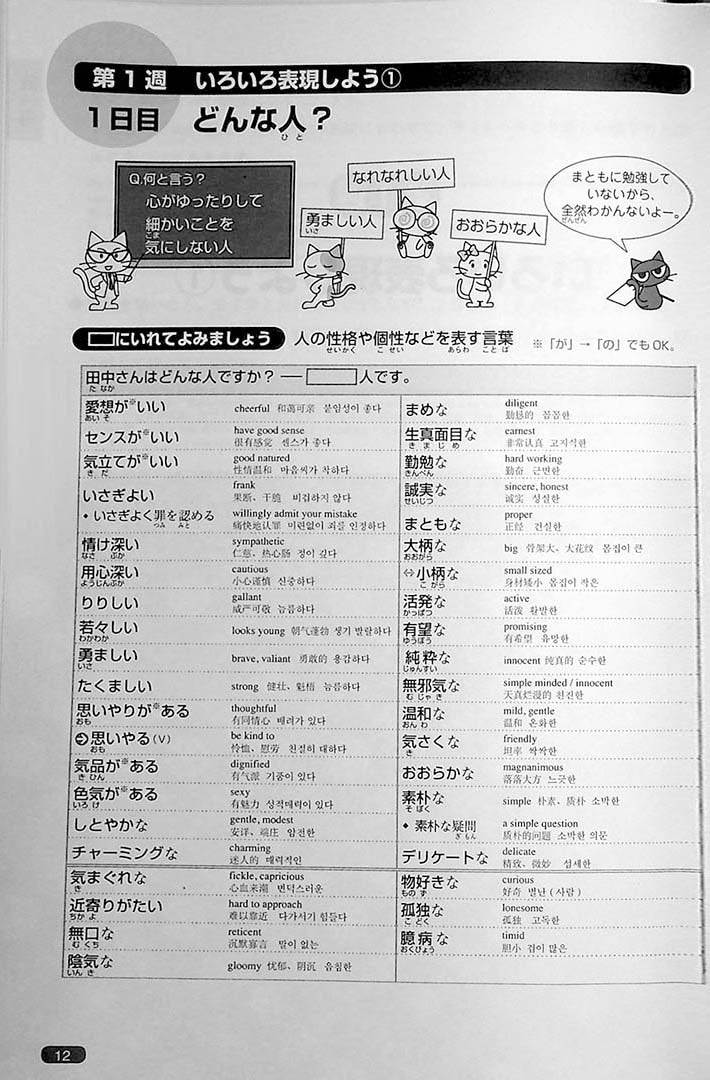 第1週 いろいろ表現しよう①
1日目 どんな人?
ひと
Q.何と言う?
心がゆったりして
細かいことを
こま
気にしない人
勇ましい人
いさ
なれなれしい人
おおらかな人
まともに勉強して
いないから、
全然わかんないよー。
ぜんぜん
□にいれてよみましょう 人の性格や個性などを表す言葉 ※「が」→「の」でもOK。
せいかく こせい あらわ ことば
田中さんはどんな人ですか? ― □人です。
たなか
愛想が※いい cheerful 和蔼可亲 붙임성이 좋다
あいそ
センスが※いい have good sense
很有感觉 센스가 좋다
気立てが※いい good natured
きだ 性情温和 마음씨가 착하다
いさぎよい frank
果断、干脆 비겁하지 않다
◆いさぎよく罪を認める willingly admit your mistake
つみ みと 痛快地认罪 미련없이 죄를 인정하다
情け深い sympathetic
なさ ぶか 仁慈、热心肠 정이 깊다
用心深い cautious
ようじんぶか 小心谨慎 신중하다
りりしい gallant
威严可敬 늠름하다
若々しい looks young 朝气蓬勃 생기 발랄하다
わかわか
勇ましい brave, valiant 勇敢的 용감하다
いさ
たくましい strong 健壮、魁梧 늠름하다
思いやりが※ある thoughtful
おも 有同情心 배려가 있다
思いやる(V) be kind to
おも 怜恤、慰劳 친절히 대하다
気品が※ある dignified
きひん 有气派 기품이 있다
色気が※ある sexy
いろけ 有魅力 성적매력이 있다
しとやかな gentle, modest
安详、端庄 얌전한
チャーミングな charming
迷人的 매력적인
気まぐれな fickle, capricious
き 心血来潮 변덕스러운
近寄りがたい hard to approach
ちかよ 难以靠近 다가서기 힘들다
無口な reticent
むくち 沉默寡言 말이 없는
陰気な gloomy 忧郁、阴沉 음침한
いんき
まめな diligent
勤恳的 꼼꼼한
生真面目な earnest
きまじめ 非常认真 고지식한
勤勉な hard working
きんべん 勤奋 근면한
誠実な sincere, honest
せいじつ 诚实 성실한
まともな proper
正经 건실한
大柄な big 骨架大、大花纹 몸집이 큰
おおがら
⇔小柄な small sized
こがら 身材矮小 몸집이 작은
活発な active
かっぱつ 活泼 활발한
有望な promising
ゆうぼう 有希望 유망한
純粋な innocent 纯真的 순수한
じゅんすい
無邪気な simple minded / innocent
むじゃき 天真烂漫的 천진한
温和な mild, gentle
おんわ 温和 온화한
気さくな friendly
き 坦率 싹싹한
おおらかな magnanimous
落落大方 느긋한
素朴な simple 朴素、质朴 소박한
そぼく
◆素朴な疑問 a simple question
ぎもん 质朴的问题 소박한 의문
デリケートな delicate
精致、微妙 섬세한
物好きな curious
ものず 好奇 별난(사람)
孤独な lonesome
こどく 孤独 고독한
臆病な timid
おくびょう 胆小 겁이 많은
12